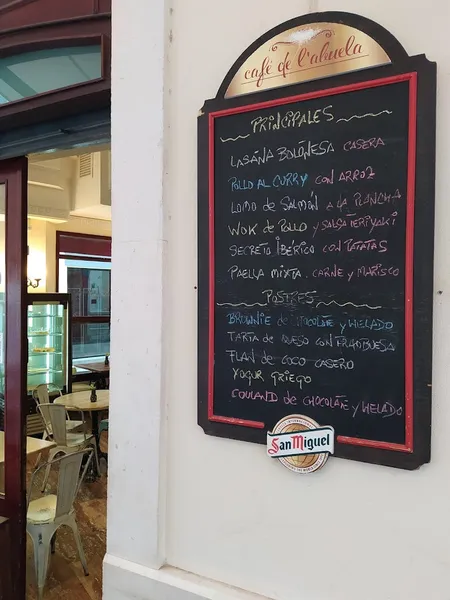 café de l'abuela
PRINCIPALES
LASAÑA BOLOÑESA CASERA
POLLO AL CURRY CON ARROZ
LOMO de SALMÓN A LA PLANCHA
WOK de POLLO y SALSA TERIYAKI
SECRETO IBÉRICO CON PATATAS
PAELLA MIXTA, CARNE y MARISCO
POSTRES
BROWNIE de CHOCOLATE y HELADO
TARTA de QUESO CON FRAMBUESA
FLAN de COCO CASERO
YOGUR GRIEGO
COULAND de CHOCOLATE y HELADO
San Miguel